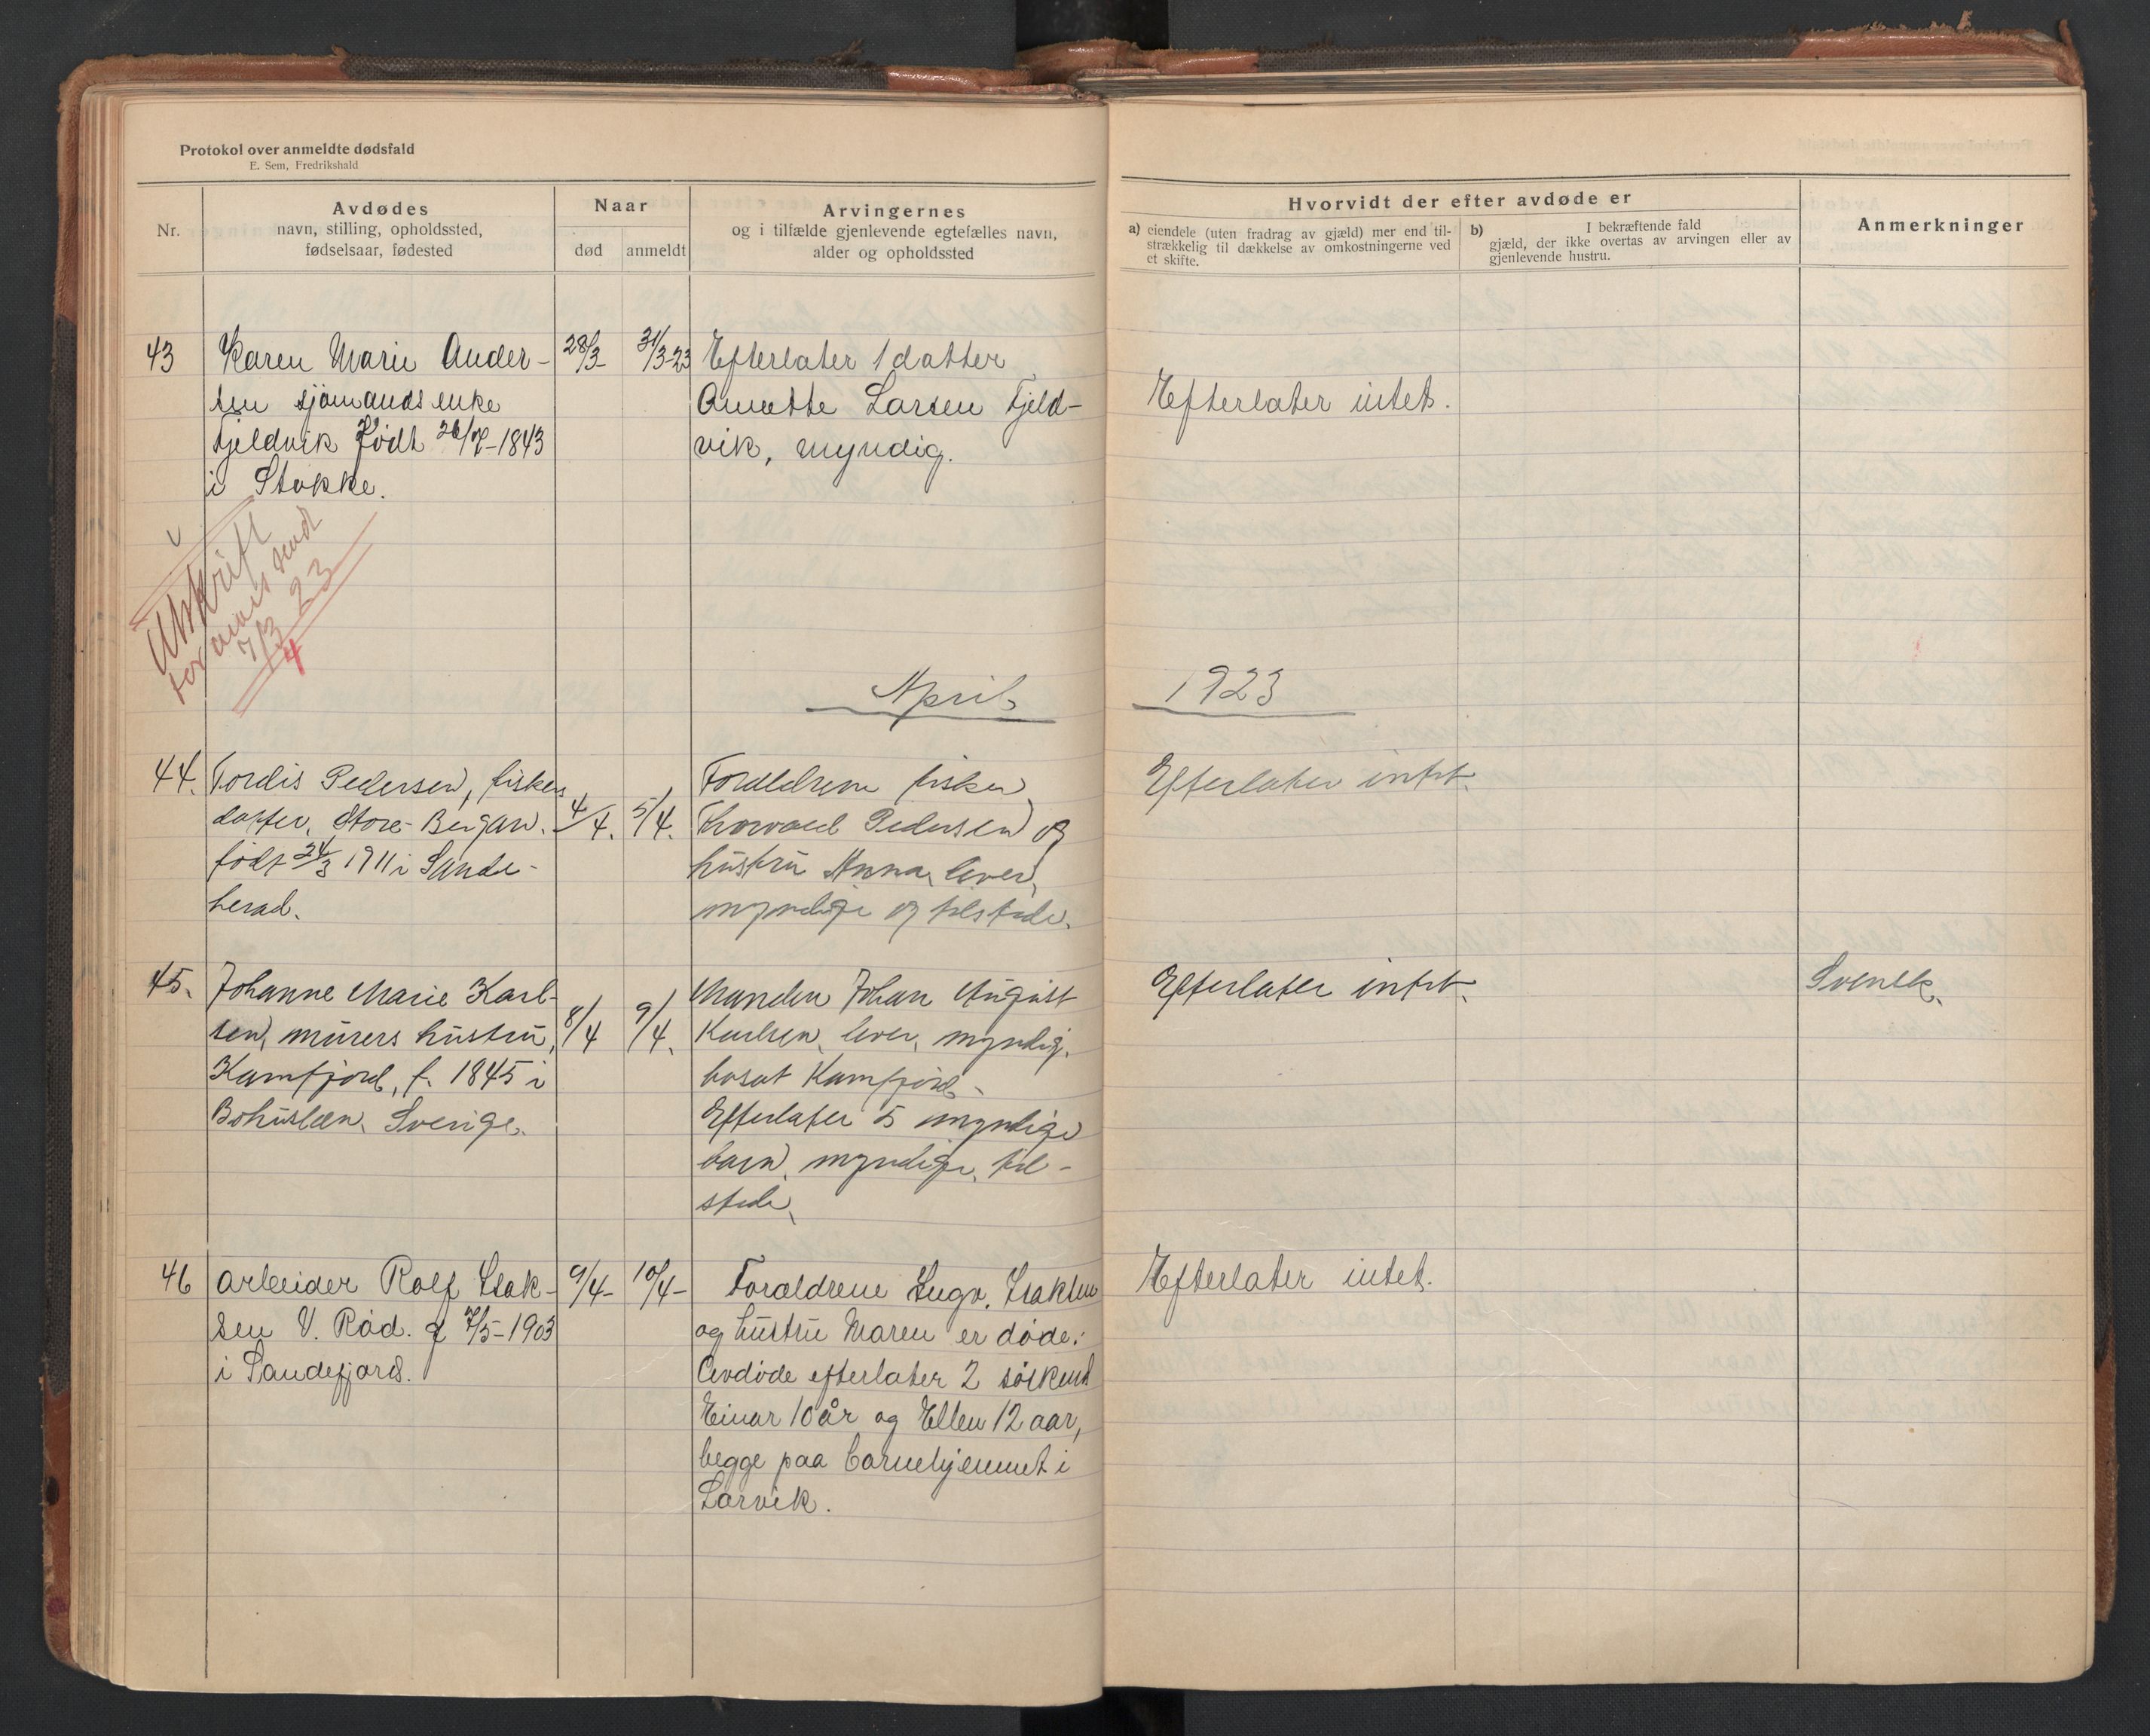 Protokol over anmeldte dødsfald
E. Sem, Fredrikshald
Nr.
Avdødes
navn, stilling, opholdssted,
fødselsaar, fødested
Naar
død
anmeldt
Arvingernes
og i tilfælde gjenlevende egtefælles navn,
alder og opholdssted
Hvorvidt der efter avdøde er
a) eiendele (uten fradrag av gjæld) mer end til-
strækkelig til dækkelse av omkostningerne ved
et skifte.
b) I bekræftende fald
gjæld, der ikke overtas av arvingen eller av
gjenlevende hustru.
Anmerkninger
43
Karen Marie Ander-
sen sjømands enke
Fjeldvik født 26/7-1843
i Stokke.
28/3-
31/3-23
Efterlater 1 datter
Anette Larsen Fjeld-
vik, myndig.
Efterlater intet.
Utskrift
for avis sendt
7/3 23
4
April
1923
44.
Tordis Pedersen, fiskers
datter, Store-Bergan.
født 24/3 1911 i Sande-
herad.
4/4.
5/4.
Forældrene fisker
Thorvald Pedersen og
hustru Anna, lever,
myndige og tilstede.
Efterlater intet.
45.
Johanne Marie Karl-
sen, murers hustru,
Kamfjord, f. 1845 i
Bohuslæn, Sverige.
8/4
9/4.
Manden Johan August
Karlsen, lever, myndig,
bosat Kamfjord.
Efterlater 5 myndige
barn, myndige, til-
stede.
Efterlater intet.
Svensk.
46
Arbeider Rolf Isak-
sen V. Rød. f 7/5-1903
i Sandefjord.
9/4-
10/4-
Forældrene Ingv. Isaksen
og hustru Maren er døde.
Avdøde efterlater 2 søskend
Einar 10 år og Ellen 12 aar,
begge paa barnehjemmet i
Larvik.
Efterlater intet.